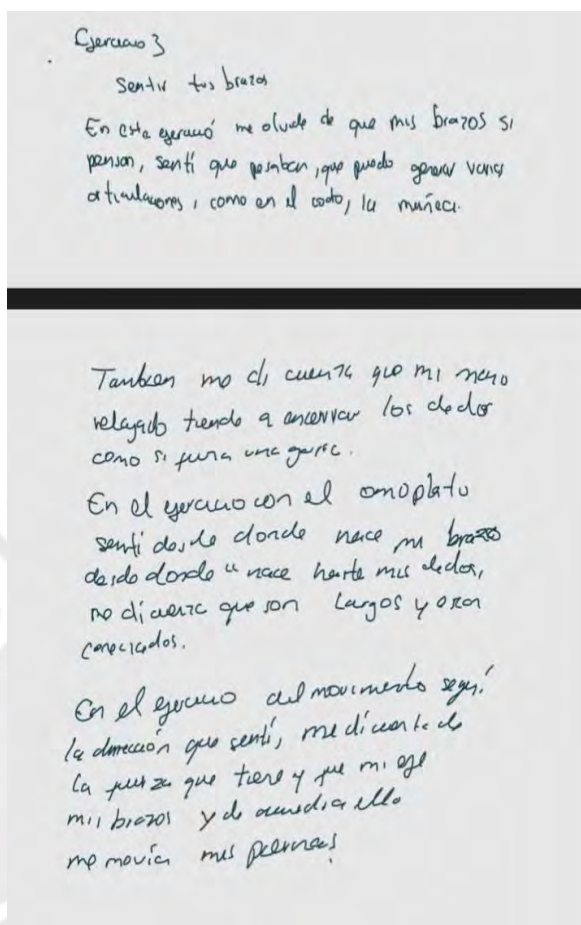 Ejercicio 3
Sentir tus brazos
En este ejercicio me olvide de que mis brazos si
pensan, sentí que pesaban, que puedo generar varias
articulaciones, como en el codo, la muñeca.
Tambien me di cuenta que mi mano
relajado tiende a encerrar los dedos
como si fuera una garra.
En el ejercicio con el omoplato
sentí desde donde nace mi brazo
desde donde nace hasta mis dedos,
me di cuenta que son largos y
conectados.
En el ejercicio del movimiento seguí
la dirección que sentí, me di cuenta de
la fuerza que tiene y que mi eje
mis brazos y de acuerdo a ello
me movía mis piernas